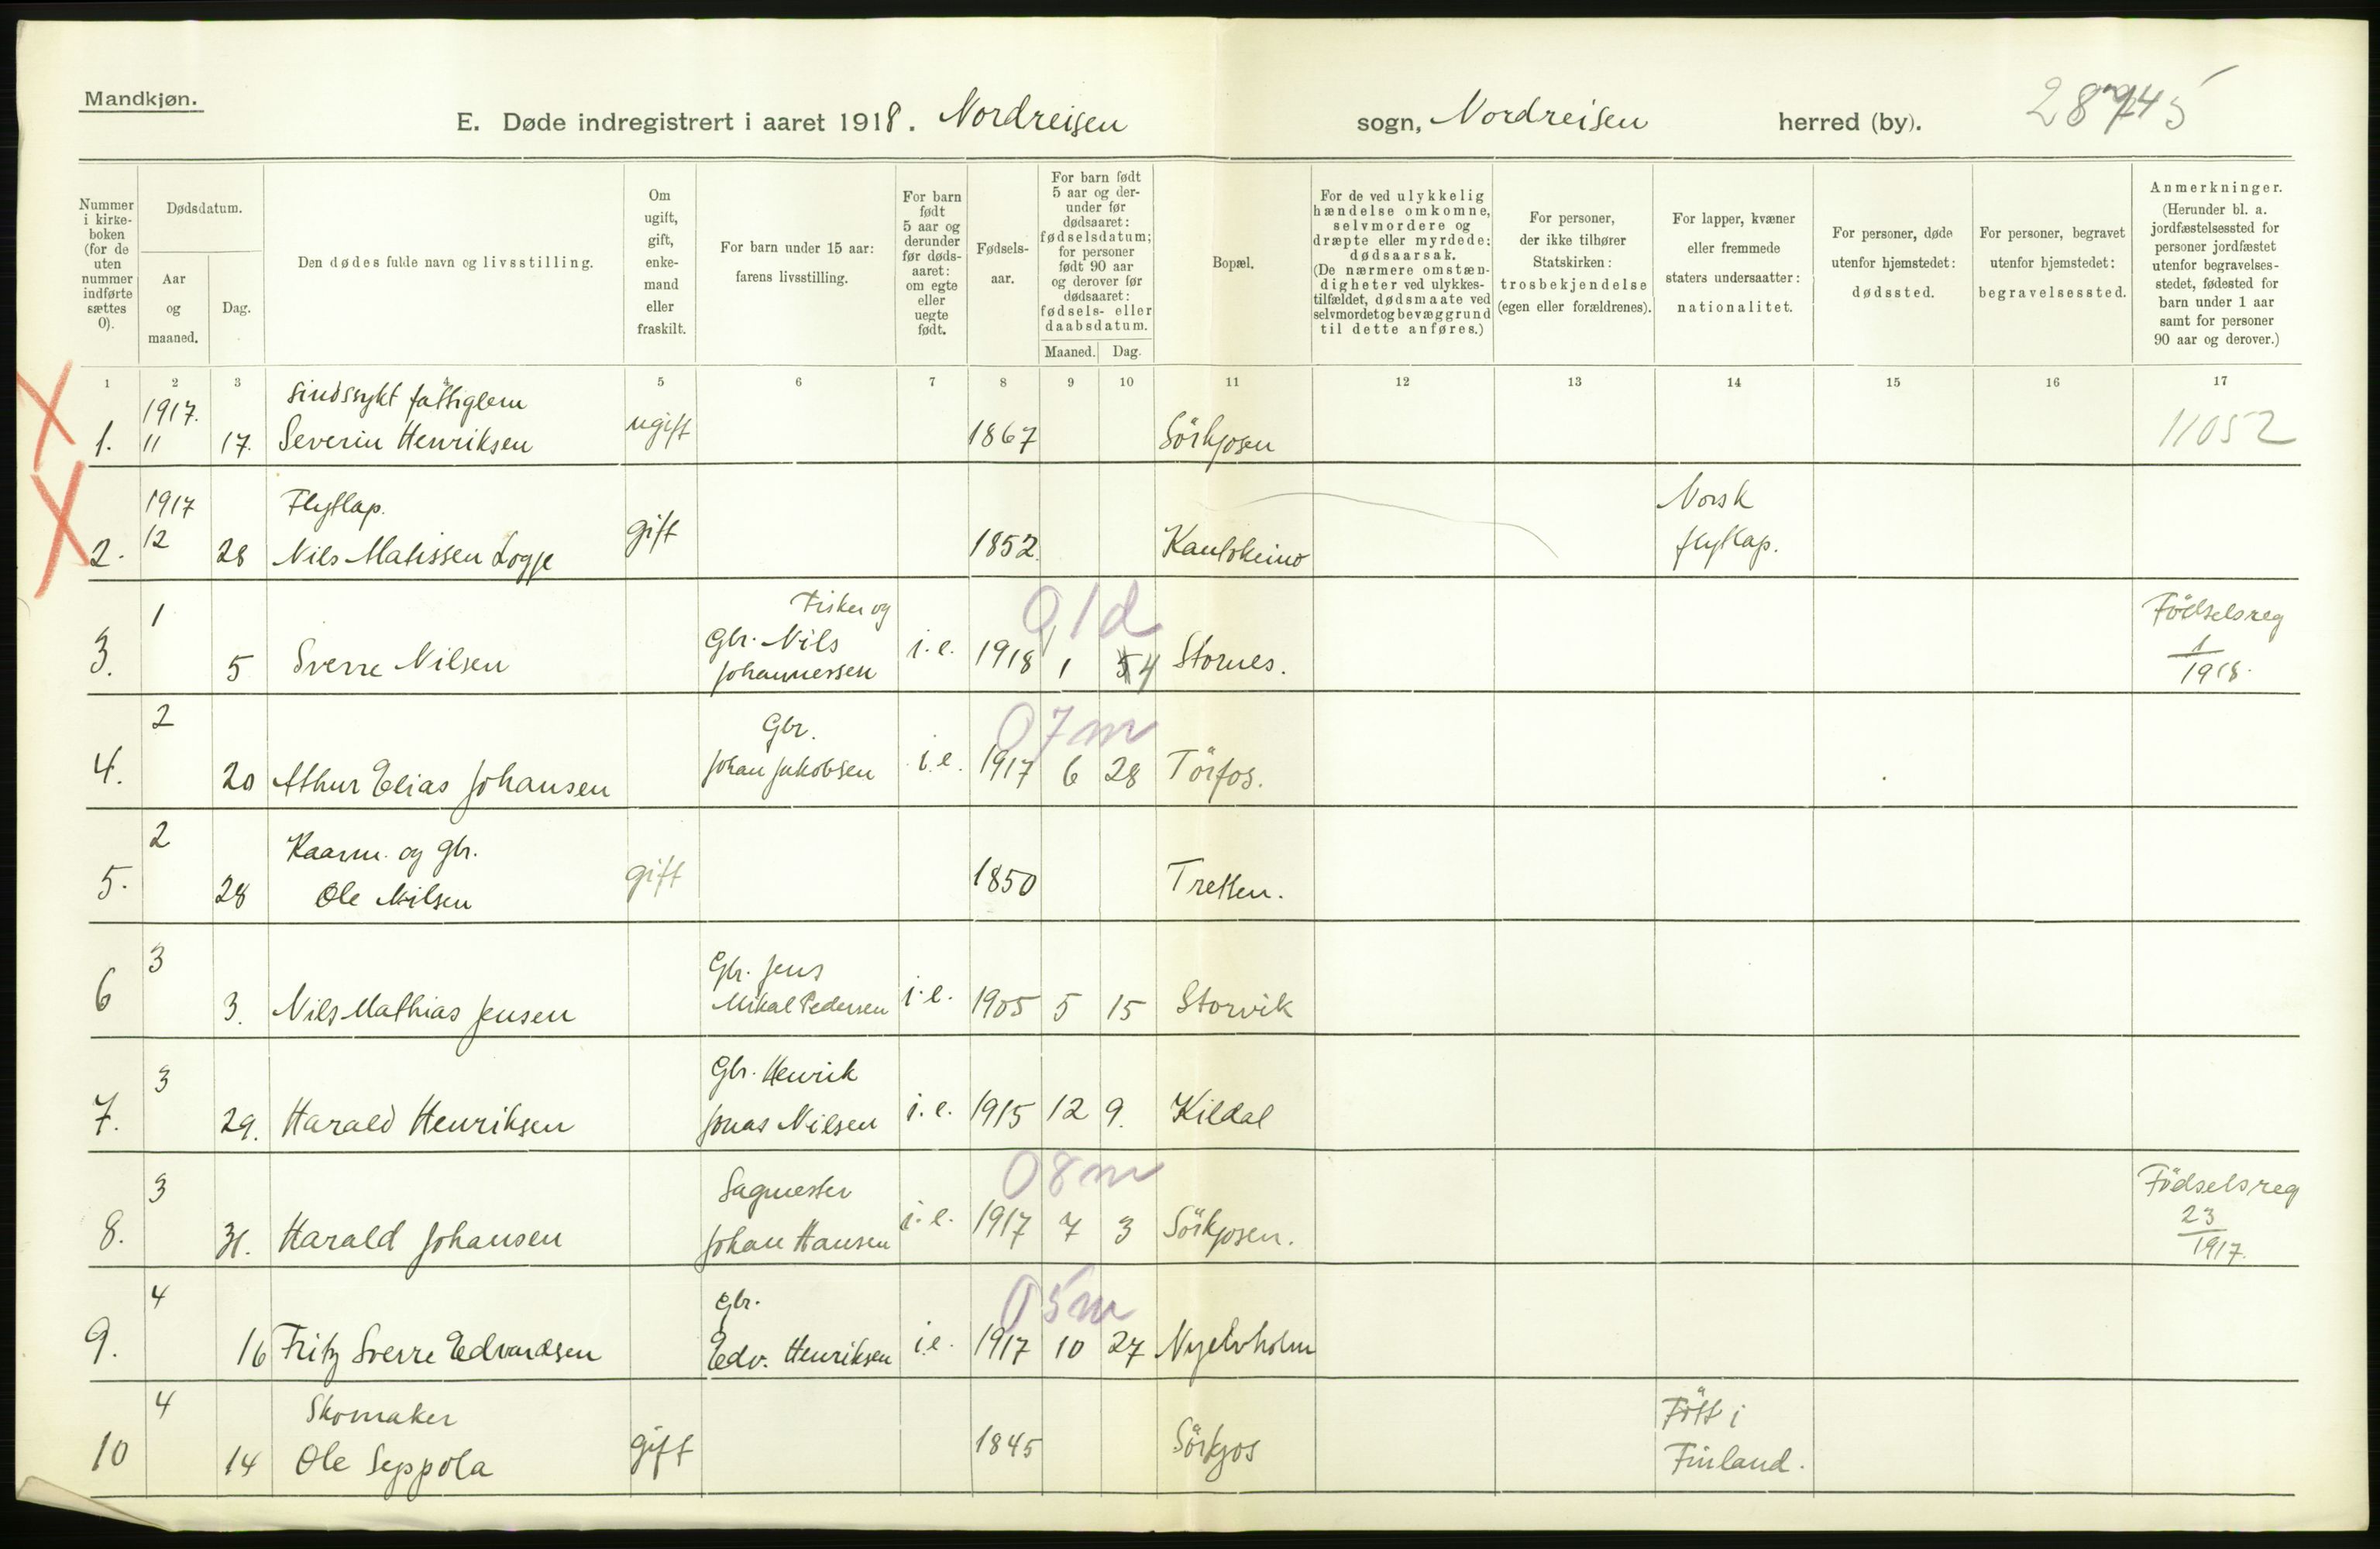 Mandkjøn.
E. Døde indregistrert i aaret 1918. Nordreisen sogn, Nordreisen herred (by).
Nummer i kirke-boken (for de uten nummer indførte sættes 0).
Dødsdatum.
Aar og maaned.
Dag.
Den dødes fulde navn og livsstilling.
Om ugift, gift, enke-mand eller fraskilt.
For barn under 15 aar: farens livsstilling.
For barn født 5 aar og derunder før døds-aaret: om egte eller uegte født.
Fødsels-aar.
For barn født 5 aar og der-under før dødsaaret: fødselsdatum; for personer født 90 aar og derover før dødsaaret: fødsels- eller daabsdatum.
Maaned. Dag.
Bopæl.
For de ved ulykkelig hændelse omkomne, selvmordere og dræpte eller myrdede: dødsaarsak. (De nærmere omstæn-digheter ved ulykkes-tilfældet, dødsmaate ved selvmordet og bevæggrund til dette anføres.)
For personer, der ikke tilhører Statskirken: trosbekjendelse (egen eller forældrenes).
For lapper, kvæner eller fremmede staters undersaatter: nationalitet.
For personer, døde utenfor hjemstedet: dødssted.
For personer, begravet utenfor hjemstedet: begravelsessted.
Anmerkninger. (Herunder bl. a. jordfæstelsessted for personer jordfæstet utenfor begravelses-stedet, fødested for barn under 1 aar samt for personer 90 aar og derover.)
1 2 3 4 5 6 7 8 9 10 11 12 13 14 15 16 17
1917. sindssykt fattiglem
1. 11 17. Severin Henriksen ugift 1867 Sörkjosen 11052
1917 Flytlap. Norsk
2. 12 28 Nils Matissen Logje gift 1852. Kautokeino flytlap.
1 Fisker og 01d Födselsreg
3. 5 Sverre Nilsen Gbr. Nils Johannessen i.e. 1918 1 4 Stornes. 1/1918.
2 Gbr. 07m
4. 20 Athur Elias Johansen Johan Jakobsen i.e. 1917 6 28 Törfos.
2 Kaarm. og gbr.
5. 28 Ole Nilsen gift 1850 Tretten.
3 Gbr. Jens
6 3. Nils Mathias Jensen Mikal Pedersen i.e. 1905 5 15 Storvik
3 Gbr. Henrik
7. 29. Harald Henriksen Jonas Nilsen i.e. 1915 12 9. Kildal
3 Sagmester 08m Födselsreg
8. 31. Harald Johansen Johan Hansen i.e. 1917 7 3 Sörkjosen. 23/1917.
4 Gbr. 05m
9. 16 Fritz Sverre Edvardsen Edv. Henriksen i.e. 1917 10 27 Nyelvholm
4 Skomaker Fött i
10 14 Ole Seppola gift 1845 Sörkjos Finland.